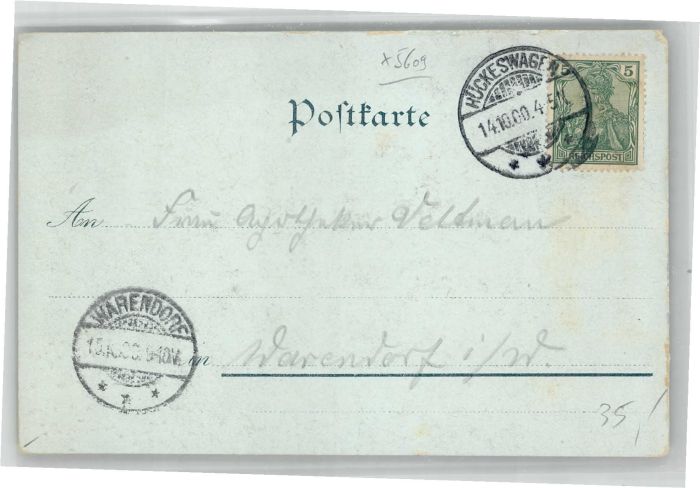 x5609
HÜCKESWAGEN
14.10.00.4-5
5
REICHSPOST
Postkarte
An Frau Apotheker Veltman
WARENDORF
15.10.00.9-10V.
in Warendorf i/W.
35,-